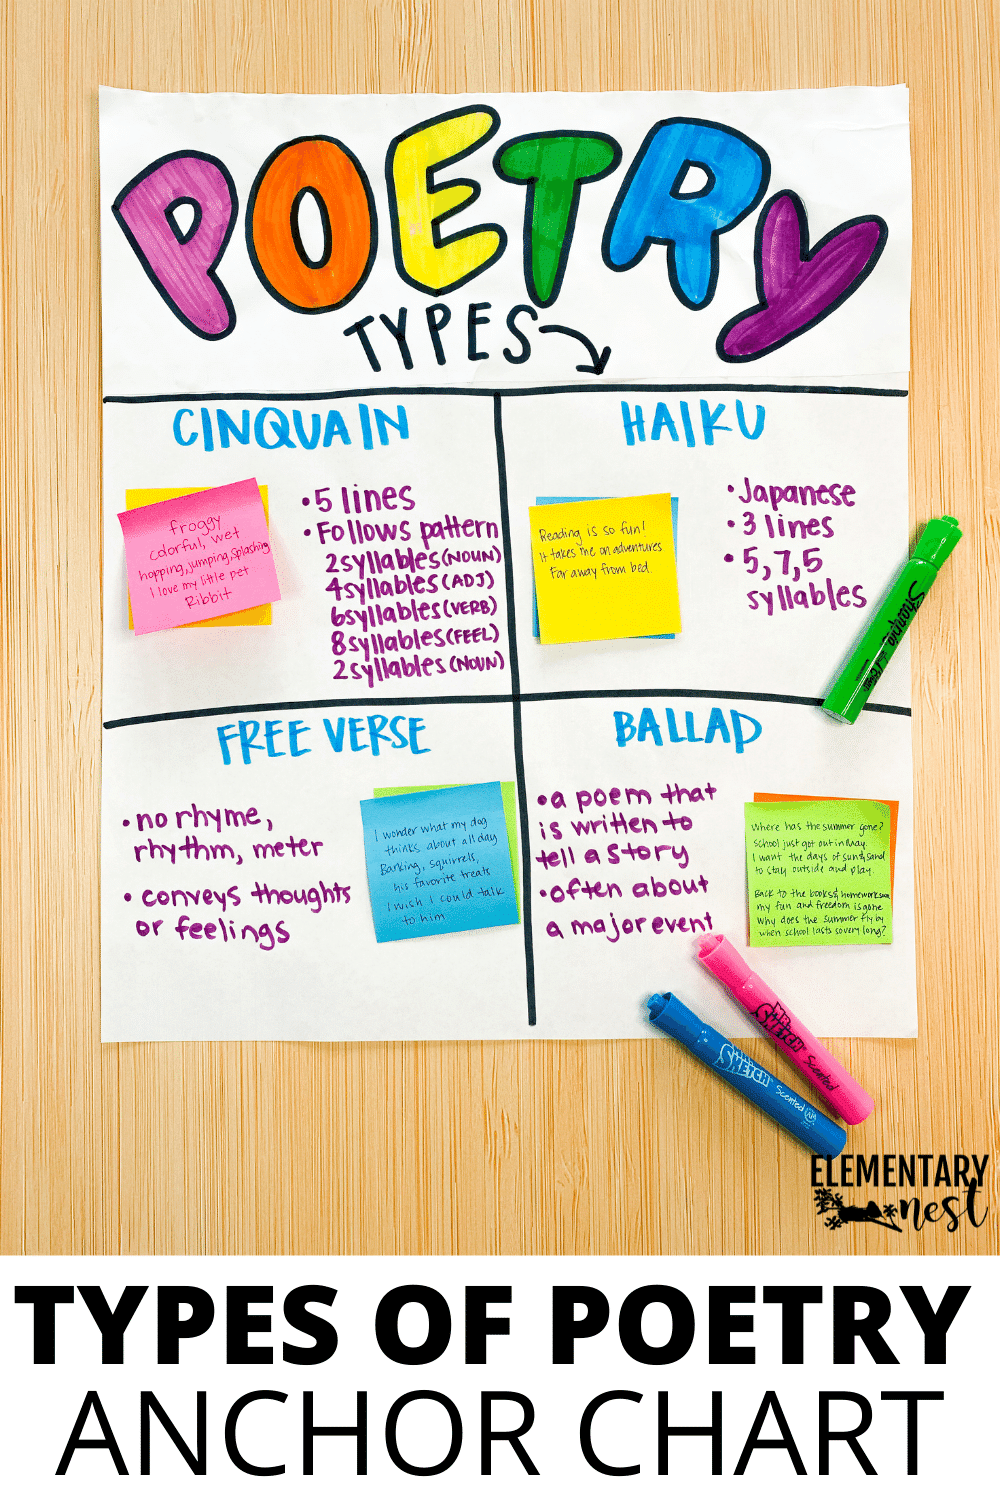 POETRY
TYPES
CINQUAIN
froggy
colorful, wet
hopping, jumping, splashing
I love my little pet
Ribbit
• 5 lines
• Follows pattern
2 syllables (NOUN)
4 syllables (ADJ)
6 syllables (VERB)
8 syllables (FEEL)
2 syllables (NOUN)
HAIKU
Reading is so fun!
It takes me on adventures
Far away from bed.
• Japanese
• 3 lines
• 5, 7, 5
syllables
Sharpie
FREE VERSE
• no rhyme,
rhythm, meter
• conveys thoughts
or feelings
I wonder what my dog
thinks about all day
Barking, squirrels,
his favorite treats
I wish I could talk
to him
BALLAD
• a poem that
is written to
tell a story
• often about
a major event
Where has the summer gone?
School just got out in May.
I want the days of sun & sand
to stay outside and play.
Back to the books & homework soon
my fun and freedom is gone
Why does the summer fly by
when school lasts so very long?
MR. SKETCH Scented
MR. SKETCH Scented
ELEMENTARY
nest
TYPES OF POETRY
ANCHOR CHART